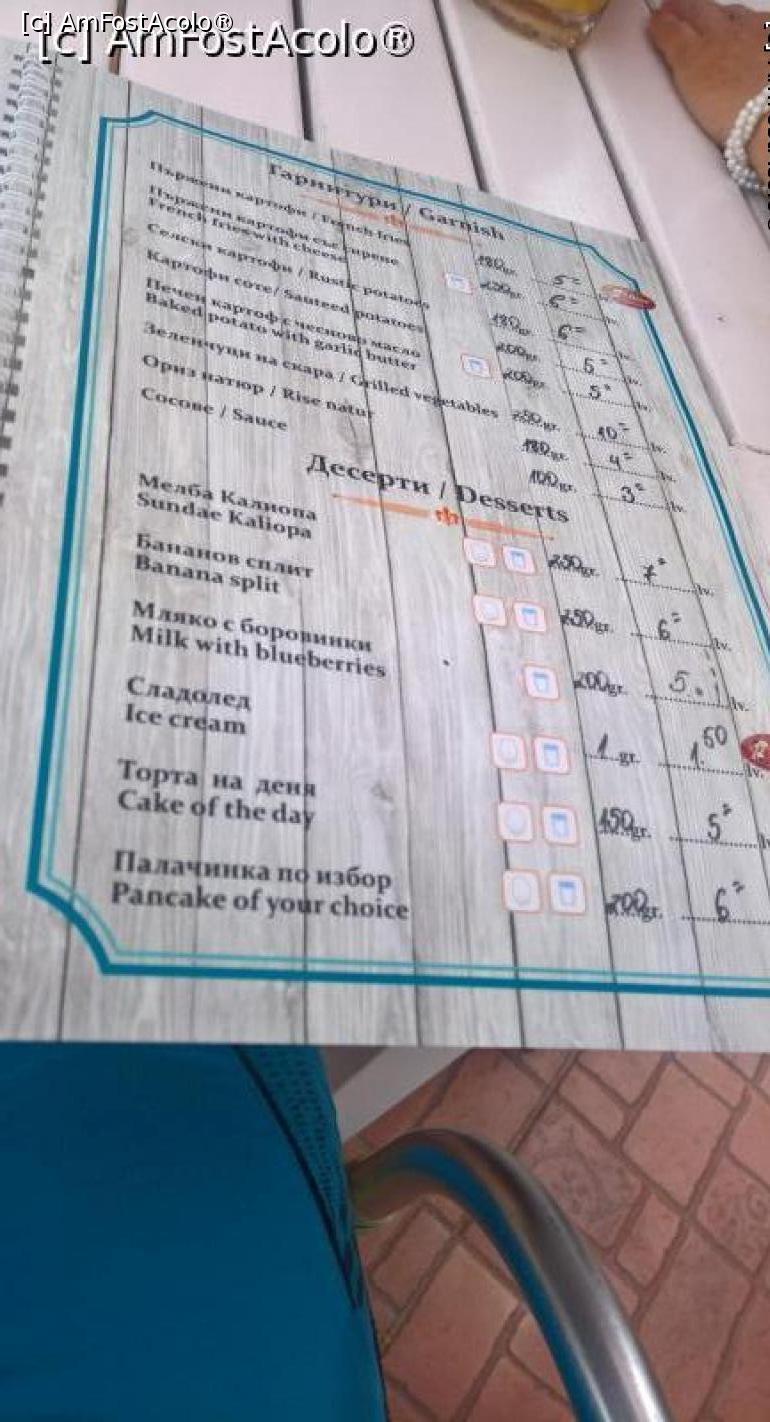 [c] AmFostAcolo®
[c] AmFostAcolo®
Гарнитури / Garnish
Пържени картофи / French fries 180gr. 5= lv.
Пържени картофи със сирене
French fries with cheese 250gr. 6= lv.
Селски картофи / Rustic potatoes 180gr. 6= lv.
Картофи соте/ Sauteed potatoes 200gr. 5= lv.
Печен картоф с чесново масло
Baked potato with garlic butter 200gr. 5= lv.
Зеленчуци на скара / Grilled vegetables 250gr. 10= lv.
Ориз натюр / Rise natur 180gr. 4= lv.
Сосове / Sauce 100gr. 3= lv.
Десерти / Desserts
Мелба Калиопа
Sundae Kaliopa 250gr. 7= lv.
Бананов сплит
Banana split 250gr. 6= lv.
Мляко с боровинки
Milk with blueberries 200gr. 5. lv.
Сладолед
Ice cream 1 gr. 1.50 lv.
Торта на деня
Cake of the day 150gr. 5= lv
Палачинка по избор
Pancake of your choice 200gr. 6=